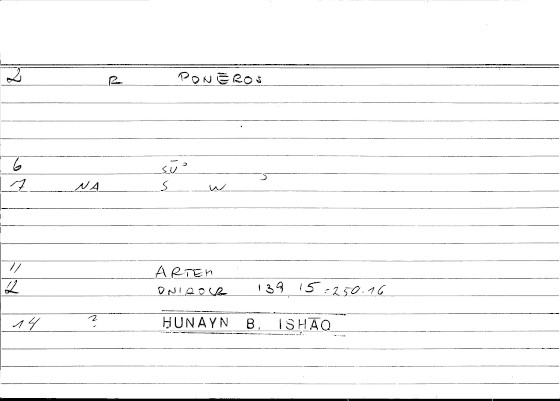 2 R PONĒROS
6 sūʾ
7 NA S W ʾ
11 ARTEM
12 ONIROCR 139 15 = 250.16
14 ? HUNAYN B. ISHĀQ